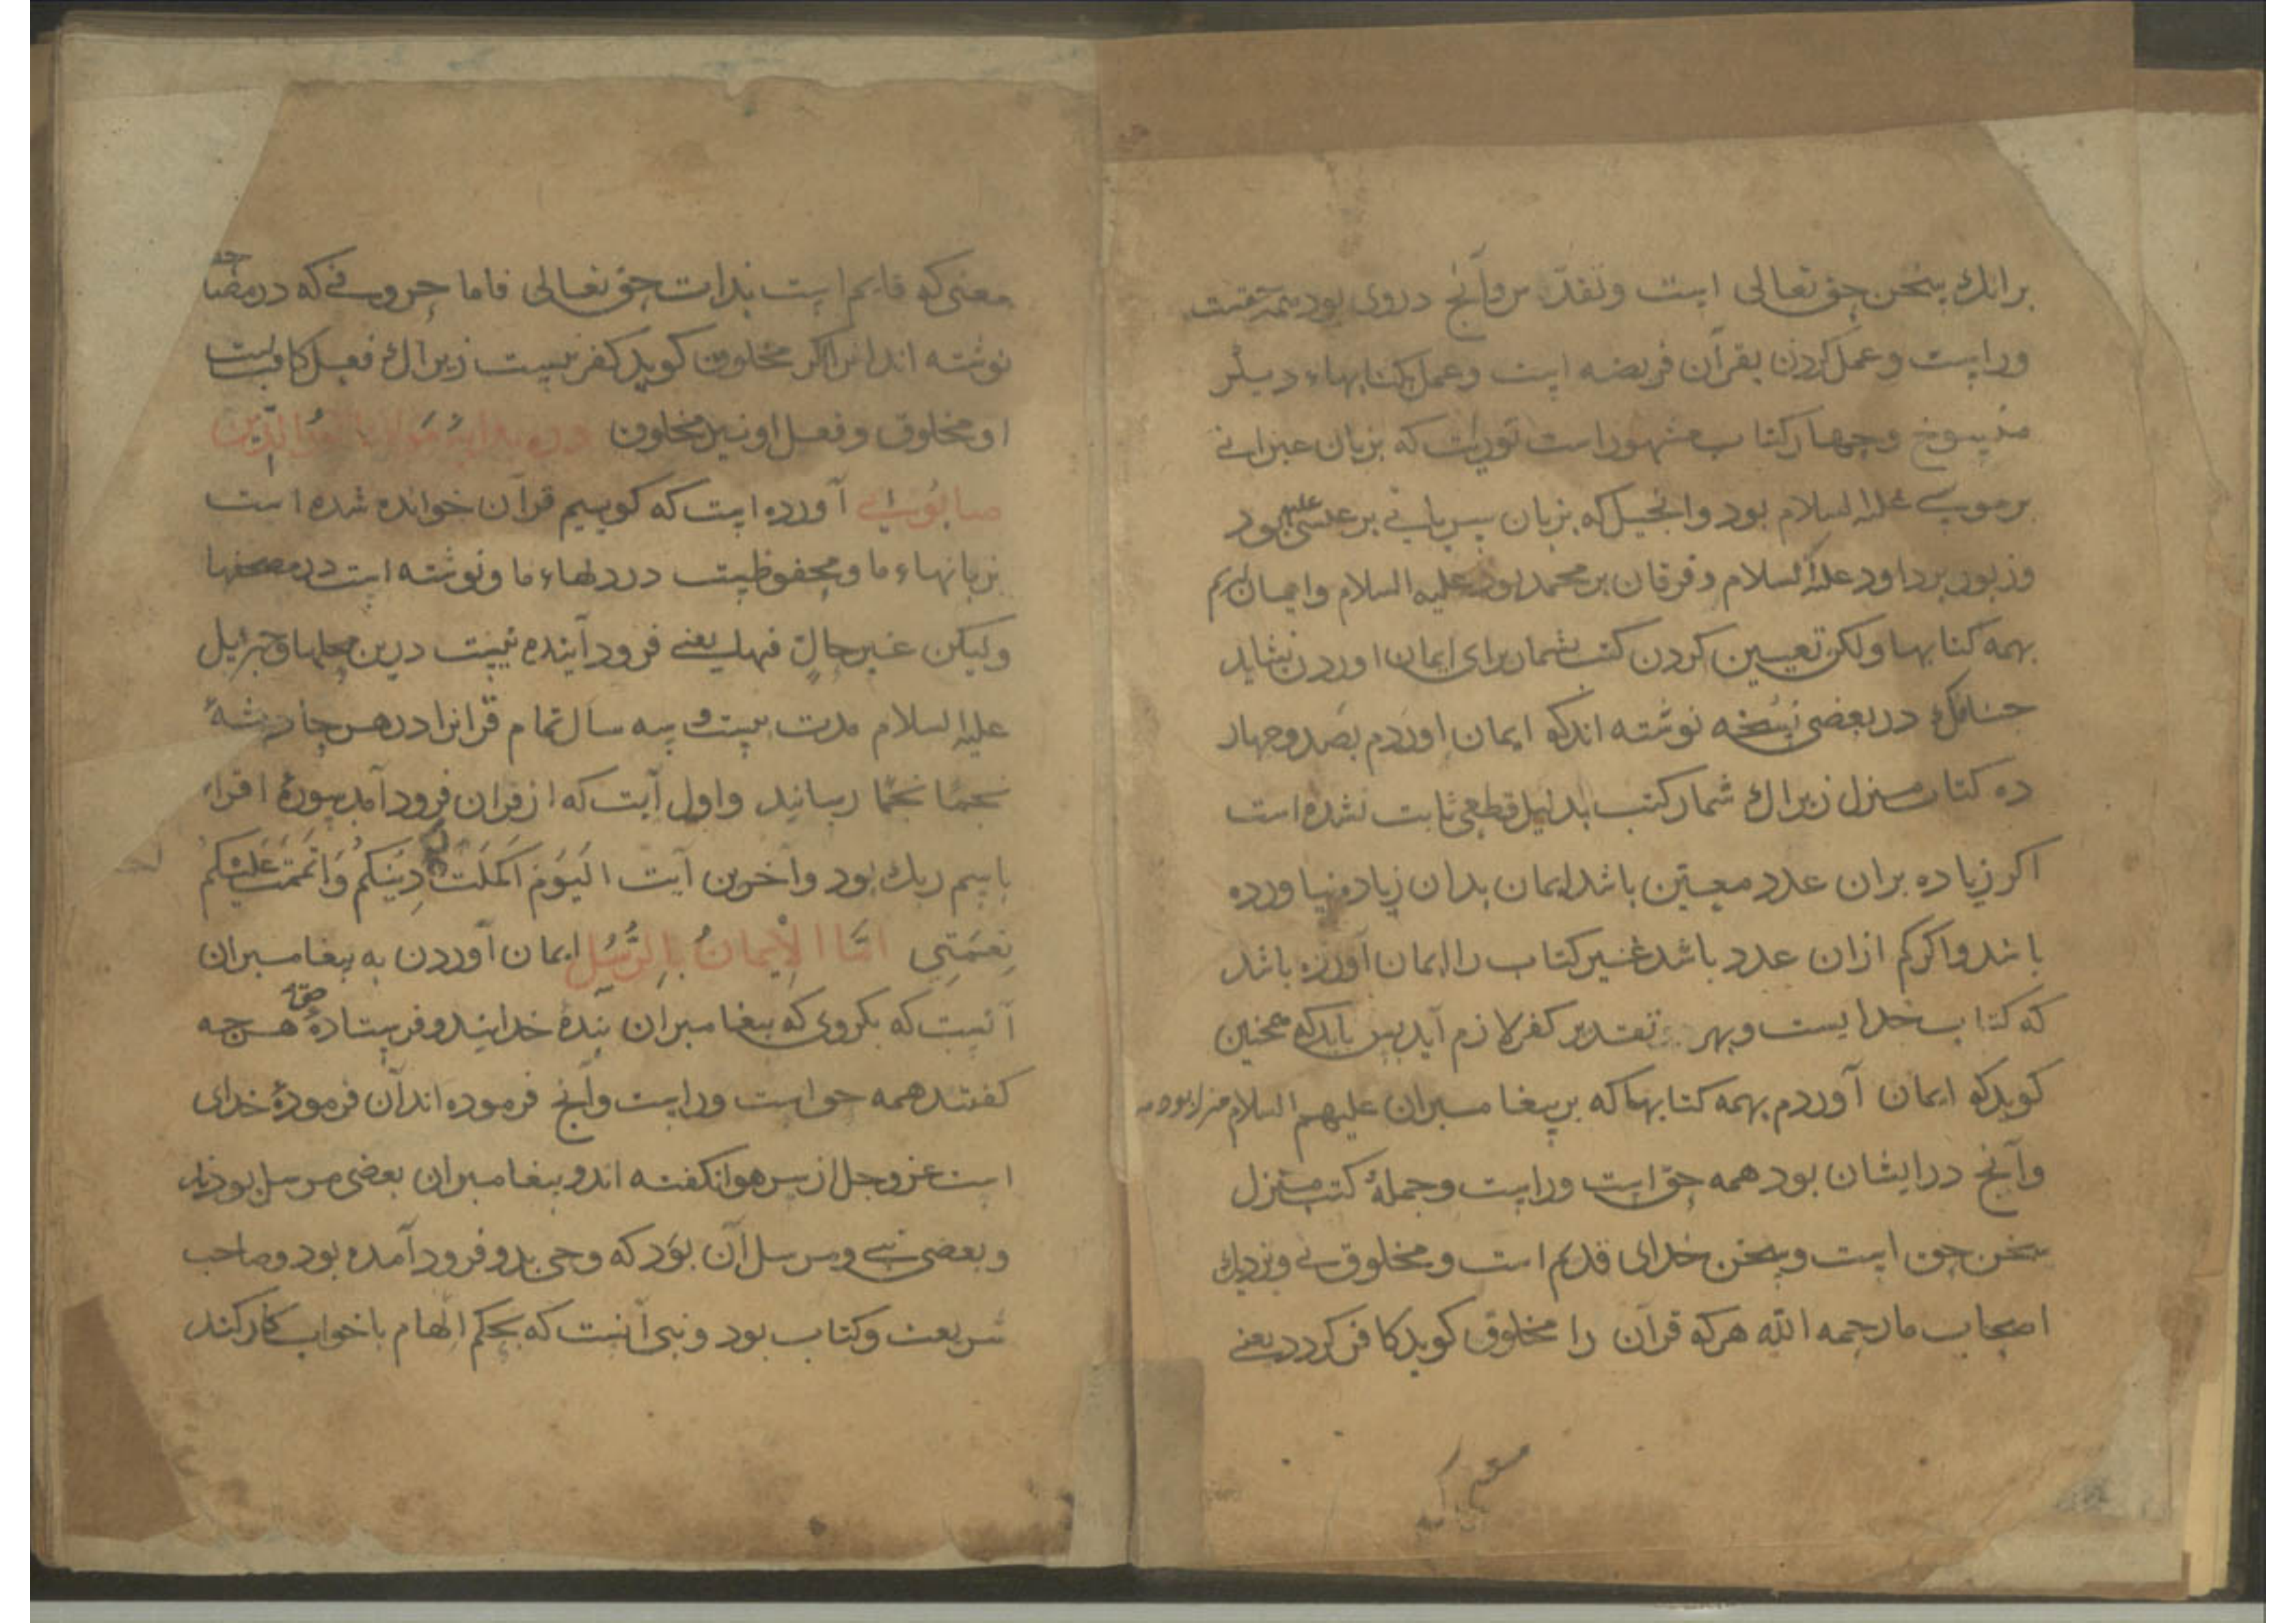 برانك سخن حق تعالی است وآنج دروی بود همه حقست
وراست وعمل کردن بقرآن فریضه است وعمل بکتابهاء دیگر
منسوخ وچهار کتاب مشهور است توریت که بزبان عبرانی
بر موسی علیه السلام بود وانجیل که بزبان سریانی بر عیسی علیه بود
وزبور بر داود علیه السلام وفرقان بر محمد بود علیه السلام وایمان
بهمه کتابها ولکن تعیین کردن کتب بشمار برای ایمان اوردن نشاید
جنانك در بعضی نسخه نوشته اند کو ایمان اوردم بصد وجهار
ده کتاب منزل زیراك شمار کتب بدلیل قطعی ثابت نشده است
اکر زیاده بران عدد معین باشد ایمان بدان زیاده نیاورده
باشد واکر کم ازان عدد باشد غیر کتاب را ایمان آورده باشد
که کتاب خدایست وبهر تقدیر کفر لازم آید بس باید که همجنین
کوید که ایمان آوردم بهمه کتابها که بر بیغامبران علیهم السلام
وآنج در ایشان بود همه حق است وراست وجملۀ کتب منزل
سخن حق است وسخن خدای قدیم است ومخلوق نی ونزدیك
اصحاب ما رحمه الله هرکه قرآن را مخلوق کوید کافر کردد یعنی
معنی که
معنی که قایم است بذات حق تعالی فاما حروفی که در مصاحف
نوشته اند انرا اکر مخلوق کوید کفر نیست زیراك فعل کاتبست
او مخلوق وفعل او نیز مخلوق ودر بدایه مولانا نور الدین
صابونی آورده است که کوییم قرآن خوانده شده است
بزبانهاء ما ومحفوظیت در دلهاء ما ونوشته است در مصحفها
ولیکن غیر حالّ فیها یعنی فرود آینده نیست درین محلها وجبرئیل
علیه السلام مدت بیست و سه سال تمام قرانرا در هر حادثۀ
نجمًا نجمًا رسانید واول آیت که از قران فرود آمد سورۀ اقراء
باسم ربك بود واخرین آیت الیَومَ اکمَلتُ لکم دِینَکُم وَاتمَمتُ عَلَیکُم
نِعمَتِی امَّا الاِیمانُ بِالرُّسُلِ ایمان آوردن به بیغامبران
آنست که بکروی که بیغامبران بندۀ خدایند وفرستادۀ حق هرجه
کفتند همه حق است وراست وآنج فرموده اند آن فرمودۀ خدای
است عز وجل از سر هوا نکفته اند و بیغامبران بعضی مرسل بودند
وبعضی نبی ومرسل آن بوَد که وحی بدو فرود آمده بود وصاحب
شریعت وکتاب بود ونبی آنست که بحکم الهام یا خواب کار کند